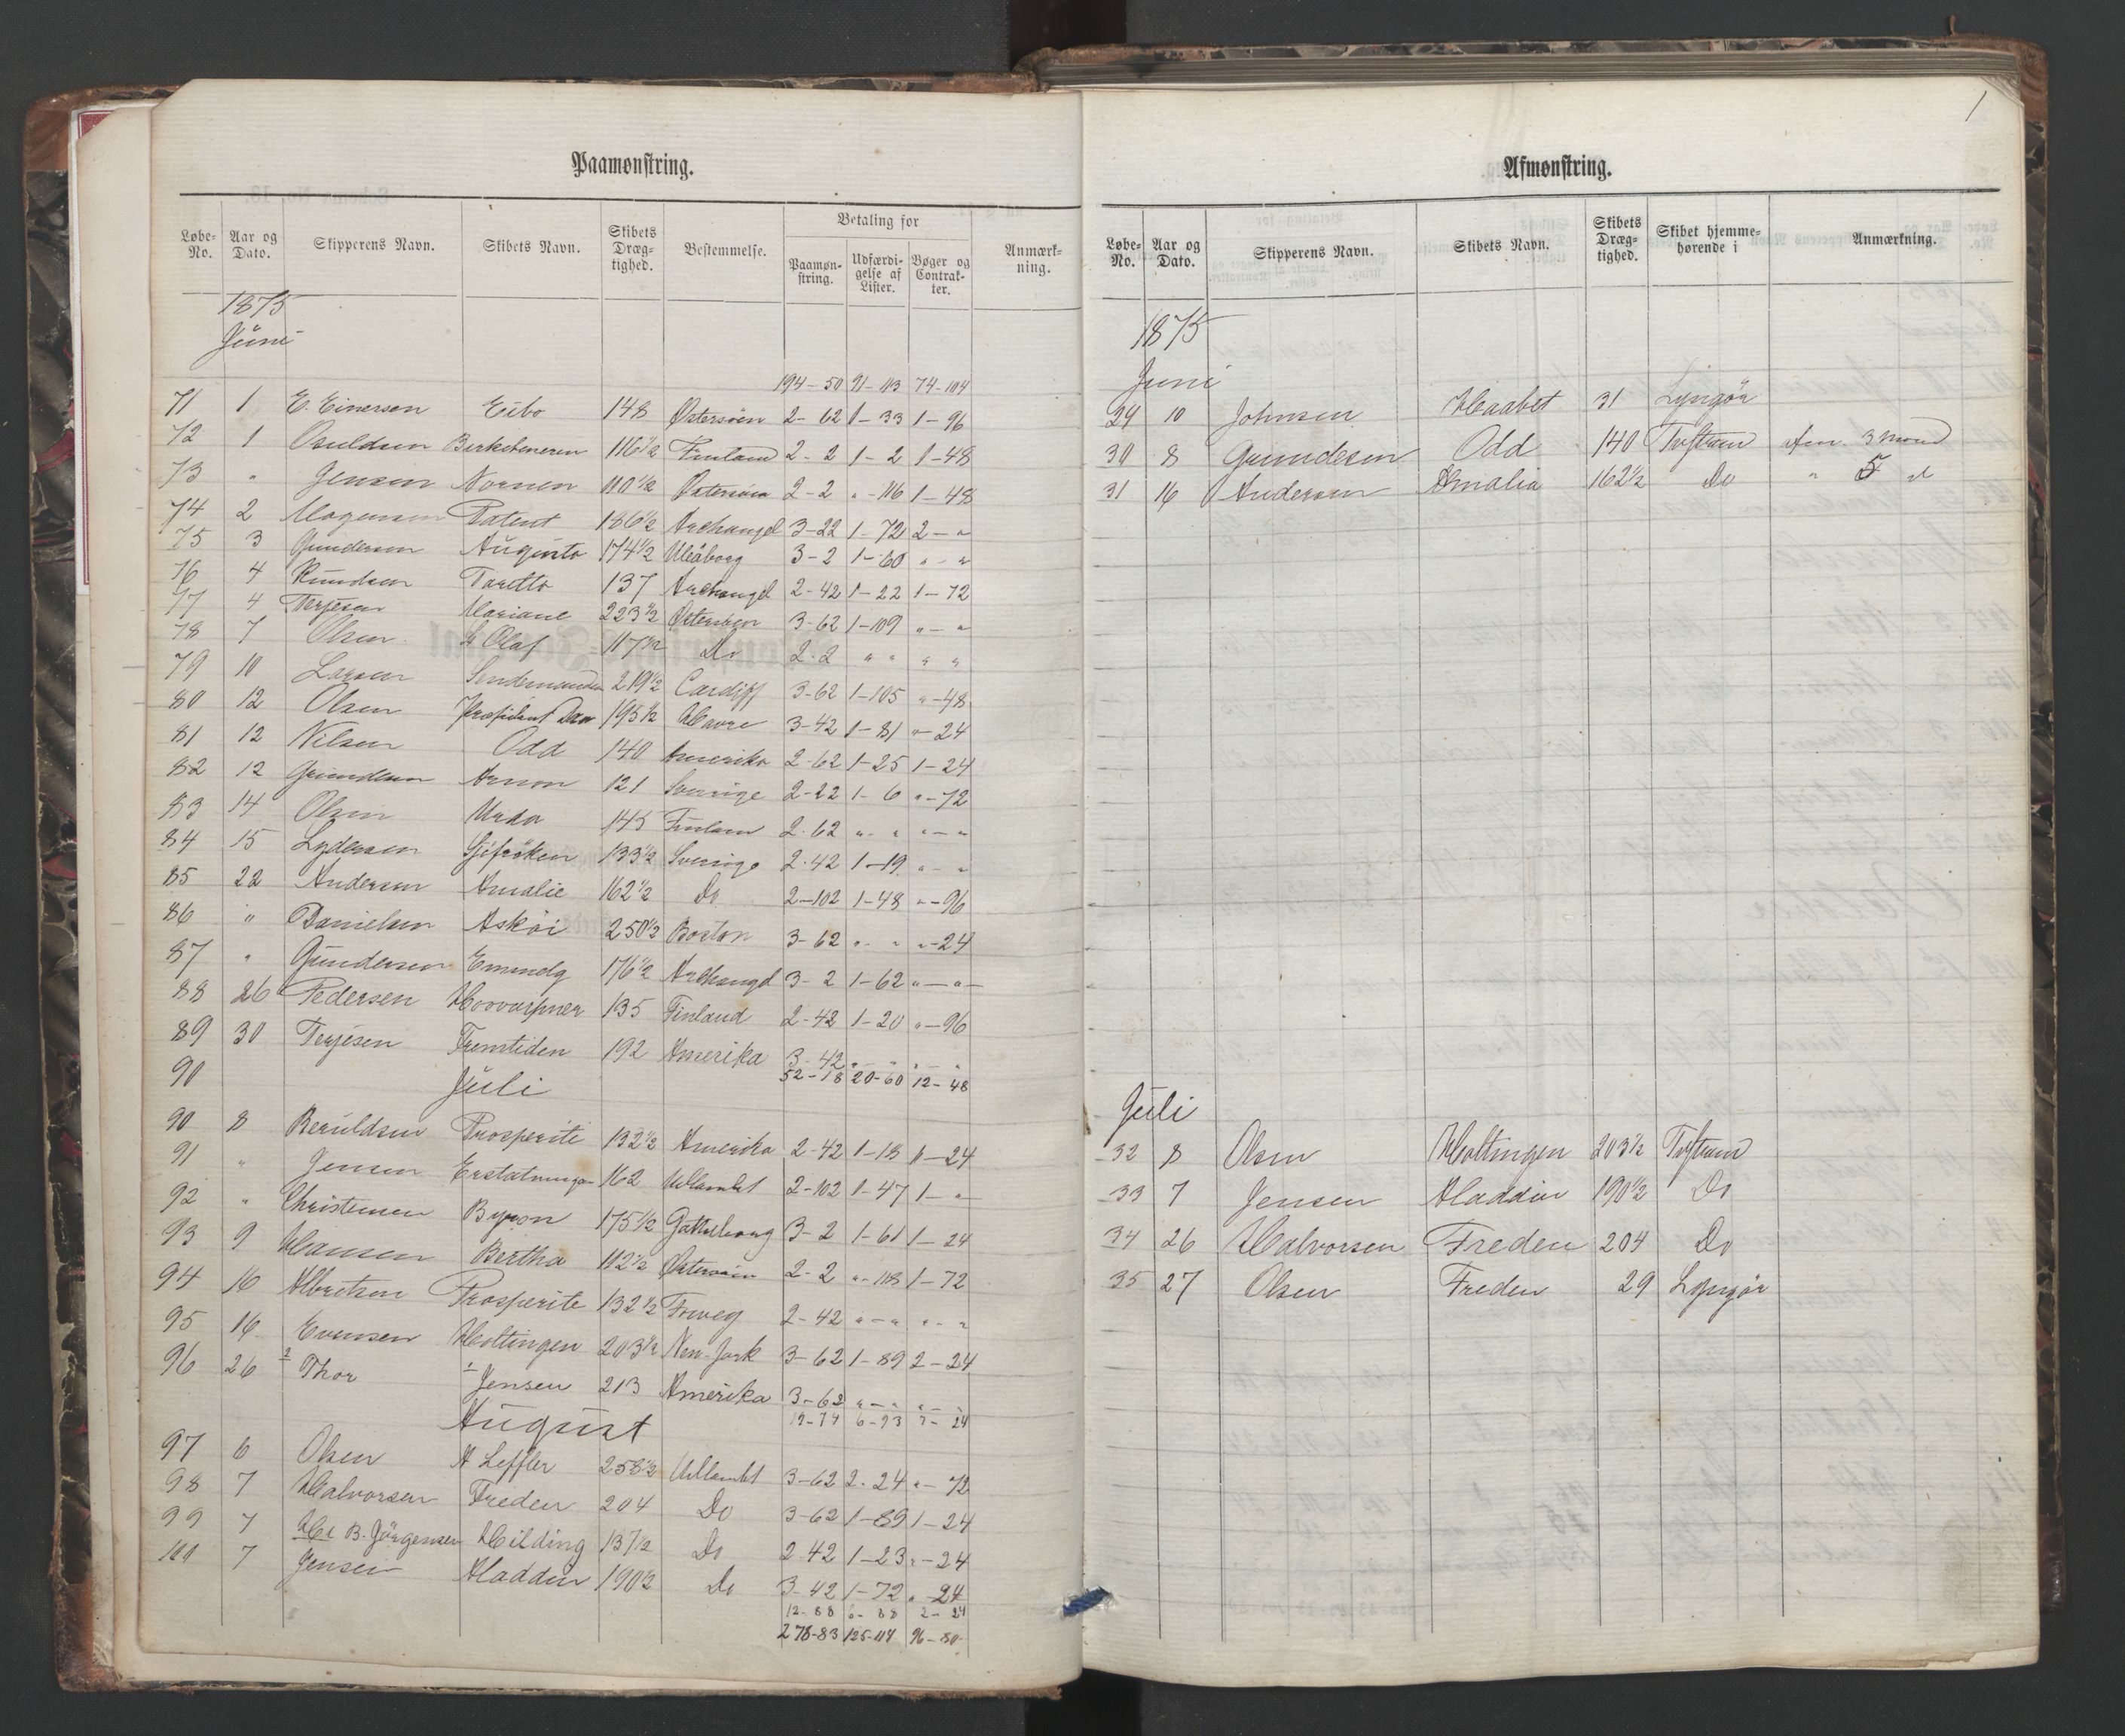 Paamønstring.
Løbe-No. Aar og Dato. Skipperens Navn. Skibets Navn. Skibets Dræg-tighed. Bestemmelse. Betaling for Paamøn-string. Udfærdi-gelse af Lister. Bøger og Contrak-ter. Anmærk-ning.
1875
Juni
194-50 91-113 74-104
71 1 E. Einersen Eibo 148 Østersøen 2-62 1-33 1-96
72 1 Osuldsen Birkebeneren 116½ Finland 2-2 1-2 1-48
73 " Jensen Nornen 110½ Østersøen 2-2 "-116 1-48
74 2 Mogensen Patent 186½ Archangel 3-22 1-72 2-"
75 3 Gundersen Augusta 174½ Uleåborg 3-2 1-60 "-"
76 4 Knudsen 137 Archangel 2-42 1-22 1-72
77 4 Terjesen Mariane 223½ Østersøen 3-62 1-109 "-"
78 7 Olsen St Olaf 117½ Do 2-2 " " " "
79 10 Larsen Sendemanden 219½ Cardiff 3-62 1-105 "-48
80 12 Olsen Præsident 195½ Havre 3-42 1-81 "-24
81 12 Nilsen Odd 140 Amerika 2-62 1-25 1-24
82 12 Gundersen Arnon 121 Sverige 2-22 1-6 "-72
83 14 Olsen Urda 145 Finland 2-62 "-" "-"
84 15 Lydersen 133½ Sverige 2-42 1-19 "-"
85 22 Andersen Amalie 162½ Do 2-102 1-48 "-96
86 " Danielsen Askøi 250½ Boston 3-62 "-" "-24
87 " Gundersen 176½ Archangel 3-2 1-62 "-"
88 26 Pedersen Hovvarpner 135 Finland 2-42 1-20 "-96
89 30 Terjesen Fremtiden 192 Amerika 3-42 "-" "-"
90 52-18 20-60 12-48
Juli
90 8 Beruldsen Prosperite 132½ Amerika 2-42 1-18 1-24
91 " Jensen 162 2-102 1-47 1-"
92 " Christensen Byron 175½ Gottenborg 3-2 1-61 1-24
93 9 Hansen Bertha 112½ Østersøen 2-2 "-118 1-72
94 16 Albretsen Prosperite 132½ 2-42 "-" "-"
95 16 Evensen Hottingen 203½ New-York 3-62 1-89 2-24
96 26 2 Thor 1 Jensen 213 Amerika 3-62 "-" "-"
19-74 6-93 7-24
August
97 6 Olsen A Leffler 258½ 3-62 2-24 "-72
98 7 Halvorsen Freden 204 Do 3-62 1-89 1-24
99 7 B. Jörgensen Hilding 137½ Do 2-42 1-23 "-24
100 7 Jensen Aladdin 190½ Do 3-42 1-72 "-24
12-88 6-88 2-24
278-83 125-114 96-80
1
Afmønstring.
Løbe-No. Aar og Dato. Skipperens Navn. Skibets Navn. Skibets Dræg-tighed. Skibet hjemme-hørende i Anmærkning.
1875
Juni
29 10 Johnsen Haabet 31 Lyngør
30 8 Gundersen Odd 140 Tvestrand 3 mand
31 16 Andersen Amalia 162½ Do " 5 d
Juli
32 8 Olsen Hottingen 203½ Tvestrand
33 7 Jensen Aladdin 190½ Do
34 26 Halvorsen Freden 204 Do
35 27 Olsen Freden 29 Lyngør